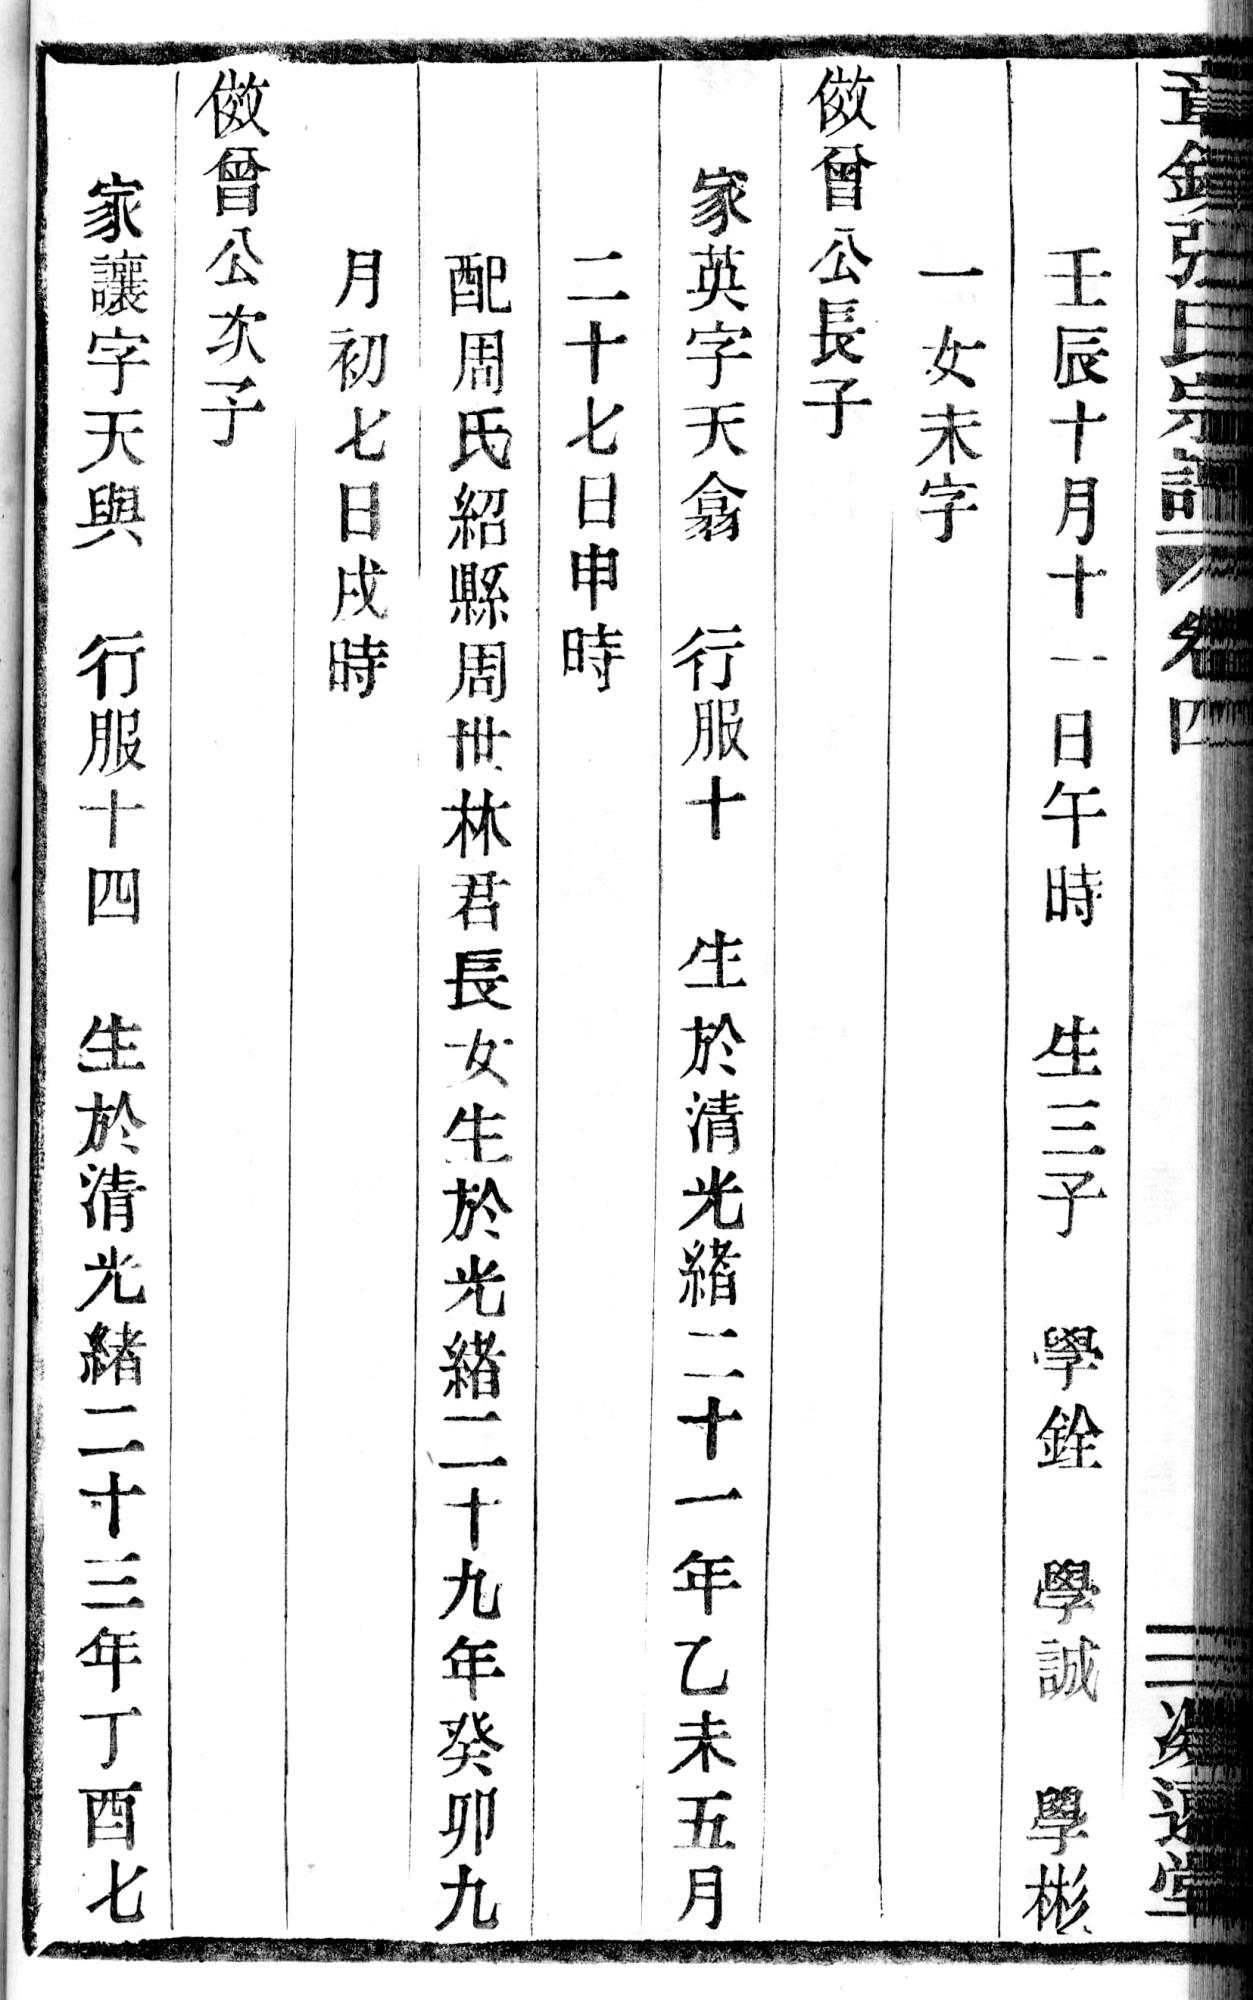 章鎮張氏宗譜 卷四 二 遠堂
壬辰十月十一日午時 生三子 學銓 學誠 學彬
一女未字
倣曾公長子
家英字天翕 行服十 生於清光緒二十一年乙未五月
二十七日申時
配周氏紹縣周世林君長女生於光緒二十九年癸卯九
月初七日戌時
倣曾公次子
家讓字天與 行服十四 生於清光緒二十三年丁酉七